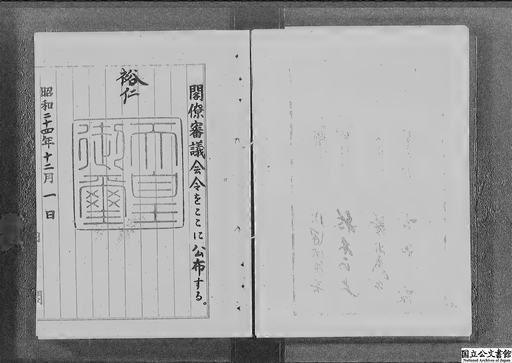 閣僚審議会令をここに公布する。
裕仁
天皇
御璽
昭和二十四年十二月一日
国立公文書館
National Archives of Japan